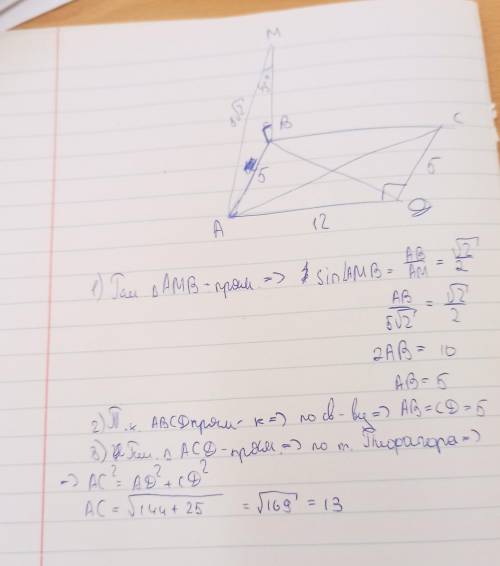 M
5√2
B
C
5
5
A
12
D
1) Так ∆AMB - прям. => sin∠AMB = AB/AM = √2/2
AB/5√2 = √2/2
2AB = 10
AB = 5
2) Т.к. ABCD прям-к => по св-ву => AB = CD = 5
3) Так ∆ ACD - прям. => по т. Пифагора =>
=> AC² = AD² + CD²
AC = √144 + 25 = √169 = 13